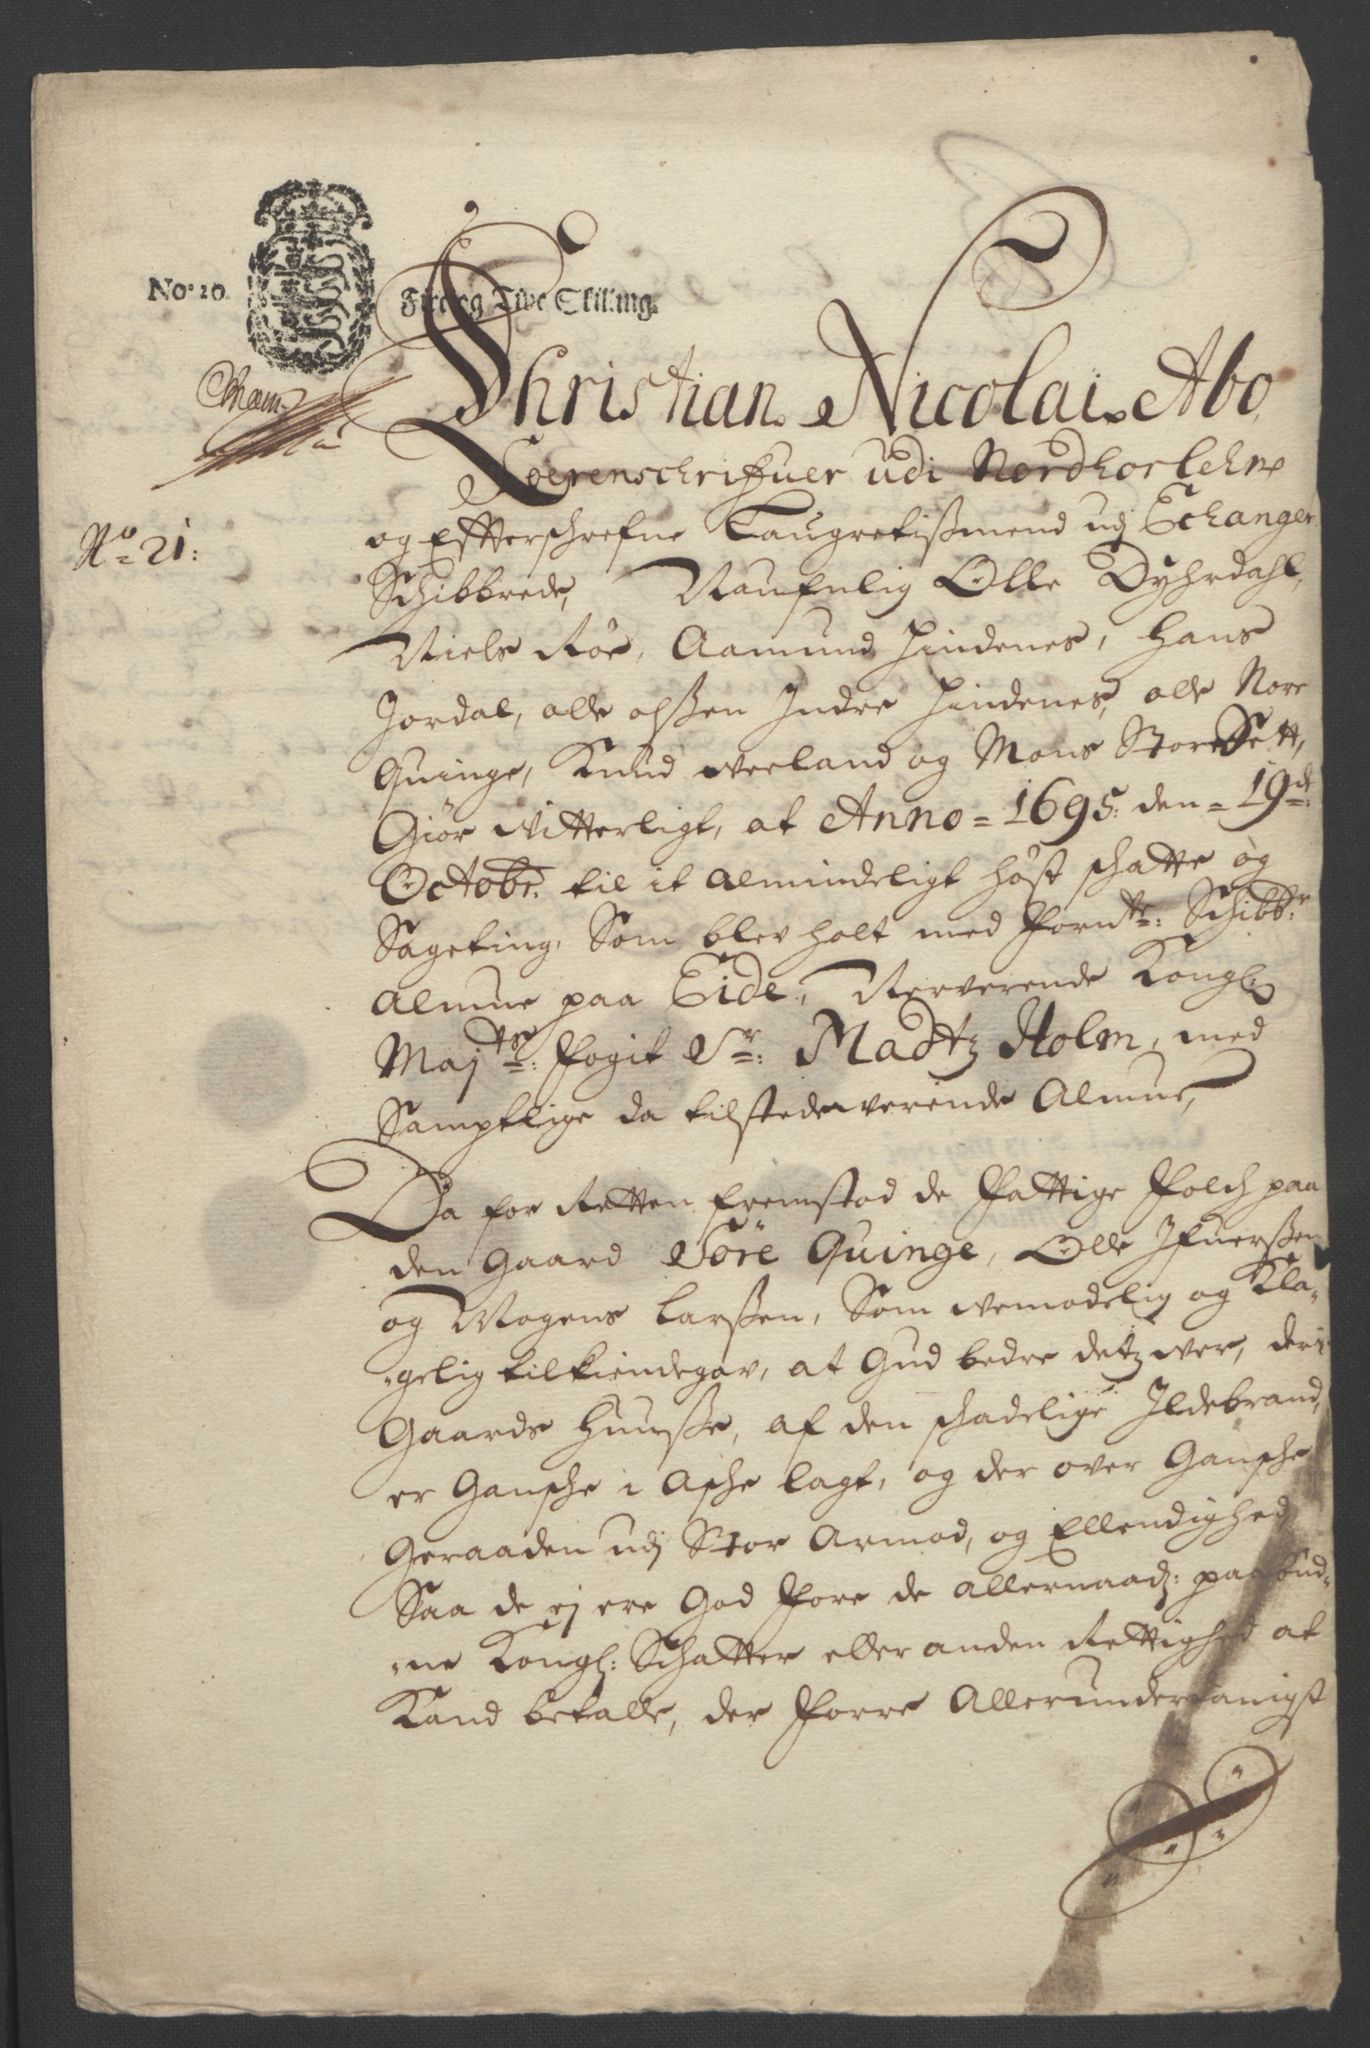 No. 20. Fire og Tive Skilling.
Christian Nicolai Abo
Soerenschrifuer udi Nordhorlehn
No 21:
og Eftterschrefne Laugretißmend udj Echanger
Schibbrede, Naufnlig Olle Dyhrdahl,
Niels Röe, Aamund Hindenes, Hans
Jordal, olle olßen Indre Hindenes, olle Nore
Quinge, Knud werland og Mons StoreSett,
Giör Witterligt, at Anno = 1695: den = 19de:
Octobr. til it almindeligt höst schatte og
Sageting, Som blev holt med Fornte: Schibbr
Almue paa Eide, Nerverende Kongl:
Majts: Fogit Sr: Madtz Holm, med
Samptlige da tilstedewerende Almue,
Da for Retten fremstod de Fattige Folch paa
den Gaard Söre Quinge, Olle Ifuerßen
og Mogens Larßen, Som wemodelig og Kla-
-gelig tilkiendegav, at Gud bedre detz wer, deris
Gaards Huuße, af den schadelige Ildebrand,
er Gansche i Asche lagt, og der over Gansche
Geraaden udj Stor Armod, og Ellendighed
Saa de ej ere God Fore de allernaadj: paabud-
-ne Kongl: Schatter eller anden Rettighed at
Kand betalle, der Forre Allerunderdanigst